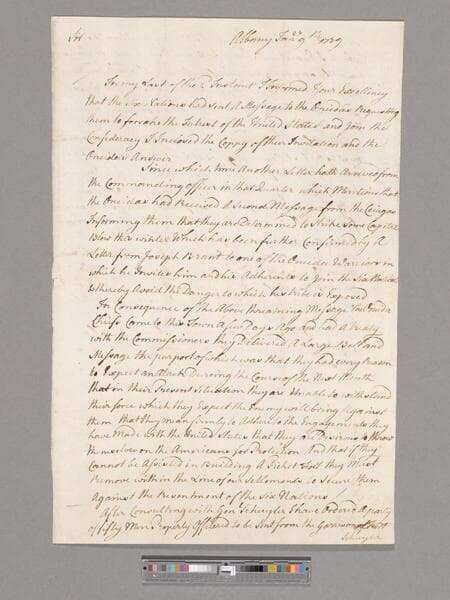 Sir
Albany Jany 9th 1779
In my Last of the 2d Instant I Informed Your Excellency
that the Six Nations had sent A Message to the Oneidas Requesting
them to forsake the Interest of the United States and Join the
Confederacy I Inclosed the Coppy of their Invitation and the
Oneidas Answer
Since which time Another Letter hath Arrived from
the Commanding Officer in that Quarter which Mentions that
the Oneidas had Received A Second Message from the Caiugas
Informing them that they are Determined to Strike Some Capital
Blow this winter Which has been further Confirmed by A
Letter from Joseph Brant to one of the Oneida Warriors in
which he Invites him and his Adherents to Join the Six Nations
& thereby Avoid the Danger to which his tribe is Exposed
In Consequence of the Above threatning Message The Oneida
Chiefs Came to this Town A few Days Ago and had A treaty
with the Commissioners they Delivered A Large Belt and
Message the purport of which was that they had every Reason
to Expect an attack During the Course of the Next Month
that in their Present Situation they are Unable to withstand
the force which they Expect the Enemy will bring Against
them that they mean firmly to Adhere to the Engagements they
have Made with the United States that they are Desirous to throw
themselves on the Americans for Protection And that if they
Cannot be Assisted in Building A Picket Fort they Must
Remove within the Line of our Settlements to Secure them
Against the Resentment of the Six Nations
After Consulting with Gen Schuyler I have Ordered A party
of fifty Men Properly Officered to be Sent from the Garrison of Fort
Schuyler